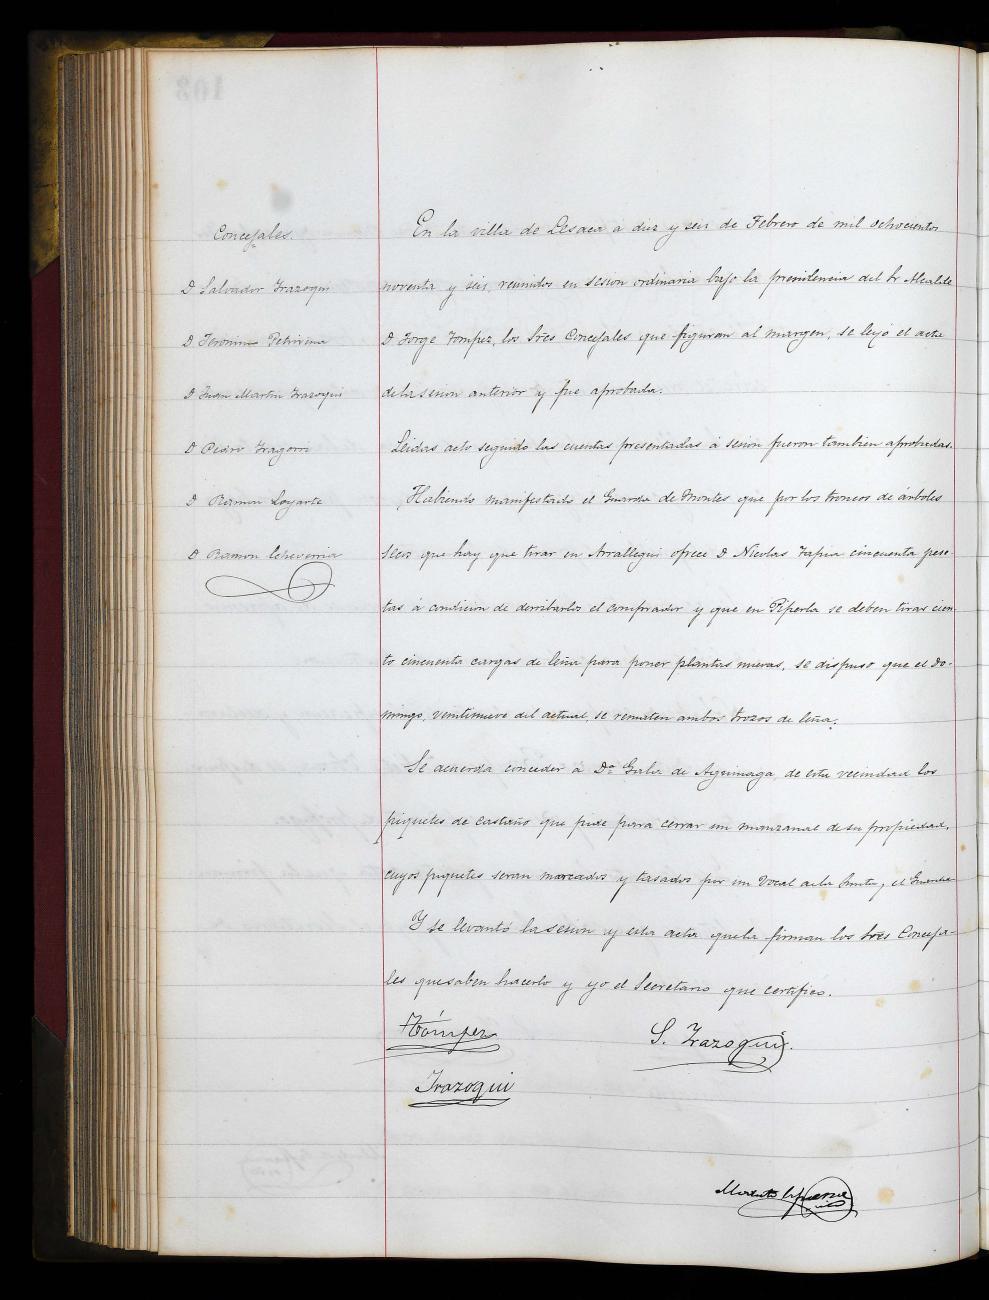 Concejales.
D Salvador Irazoqui
D Jeronimo
D Juan Martin Irazoqui
D Pedro
D Ramon Loyarte
D Ramon Echeverria
En la villa de Lesaca a diez y seis de Febrero de mil ochocientos
noventa y seis, reunidos en sesion ordinaria bajo la presidencia del Sr Alcalde
D Jorge Tompez, los Sres Concejales que figuran al margen, se leyó el acta
de la sesion anterior y fue aprobada.
Leidas acto seguido las cuentas presentadas á sesion fueron tambien aprobadas.
Habiendo manifestado el Guarda de Montes que por los troncos de árboles
secos que hay que tirar en Arrallegui ofrece D Nicolas Tapia cincuenta pese-
tas á condicion de derribarlos el comprador y que en Piperla se deben tirar cien-
to cincuenta cargas de leña para poner plantas nuevas, se dispuso que el Do-
mingo, veintinueve del actual, se rematen ambos trozos de leña.
Se acuerda conceder á Dª Gala de Aguinaga de esta vecindad los
piquetes de castaño que pide para cerrar un manzanal de su propiedad,
cuyos piquetes seran marcados y tasados por un Vocal de la Junta y el Guarda
Y se levantó la sesion y esta acta que la firman los Sres Conceja-
les que saben hacerlo y yo el Secretario que certifico.
Tómpez
S. Irazoqui.
Irazoqui
Modesto